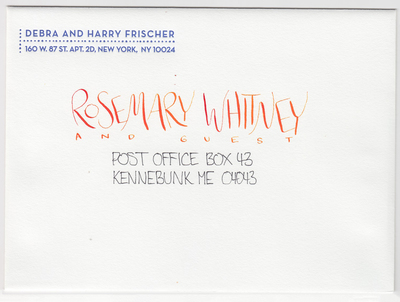 DEBRA AND HARRY FRISCHER
160 W. 87 ST. APT. 2D, NEW YORK, NY 10024
ROSEMARY WHITNEY
AND GUEST
POST OFFICE BOX 43
KENNEBUNK ME 04043